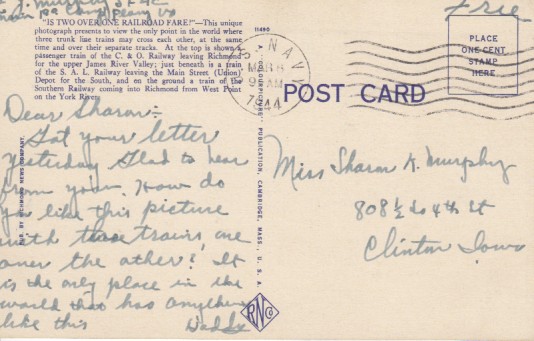 Free
"IS TWO OVER ONE RAILROAD FARE?"—This unique
photograph presents to view the only point in the world where
three trunk line trains may cross each other, at the same
time and over their separate tracks. At the top is shown a
passenger train of the C. & O. Railway leaving Richmond
for the upper James River Valley; just beneath is a train
of the S. A. L. Railway leaving the Main Street (Union)
Depot for the South, and on the ground a train of the
Southern Railway coming into Richmond from West Point
on the York River.
11490
A "COLOURPICTURE" PUBLICATION, CAMBRIDGE, MASS., U. S. A.
PUB. BY RICHMOND NEWS COMPANY,
U.S. NAVY
MAR 14
9 AM
1944
PLACE
ONE CENT
STAMP
HERE
POST CARD
Dear Sharon:-
Got your letter
yesterday Glad to hear
from you. How do
you like this picture
with trains, one
over the other? It
is the only place in the
world that has anything
like this Daddy
RNCo
Miss Sharon K. Murphy
808 1/2 So 4th St
Clinton Iowa